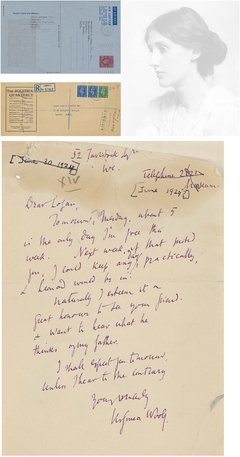 THE POLITICAL
QUARTERLY
[June 30 1924]
52 Tavistock Sqre
WC.
Telephone
Museum
[June 1924]
XIV
Dear Logan,
Tomorrow, Tuesday, about 5
is the only day I'm free this
week. Next week, if that suited
you, I could keep any day, practically,
& Leonard would be in.
Naturally I esteem it a
great honour to see your friend.
& want to hear what he
thinks of my father.
I shall expect you tomorrow,
unless I hear to the contrary
Yours sincerely
Virginia Woolf